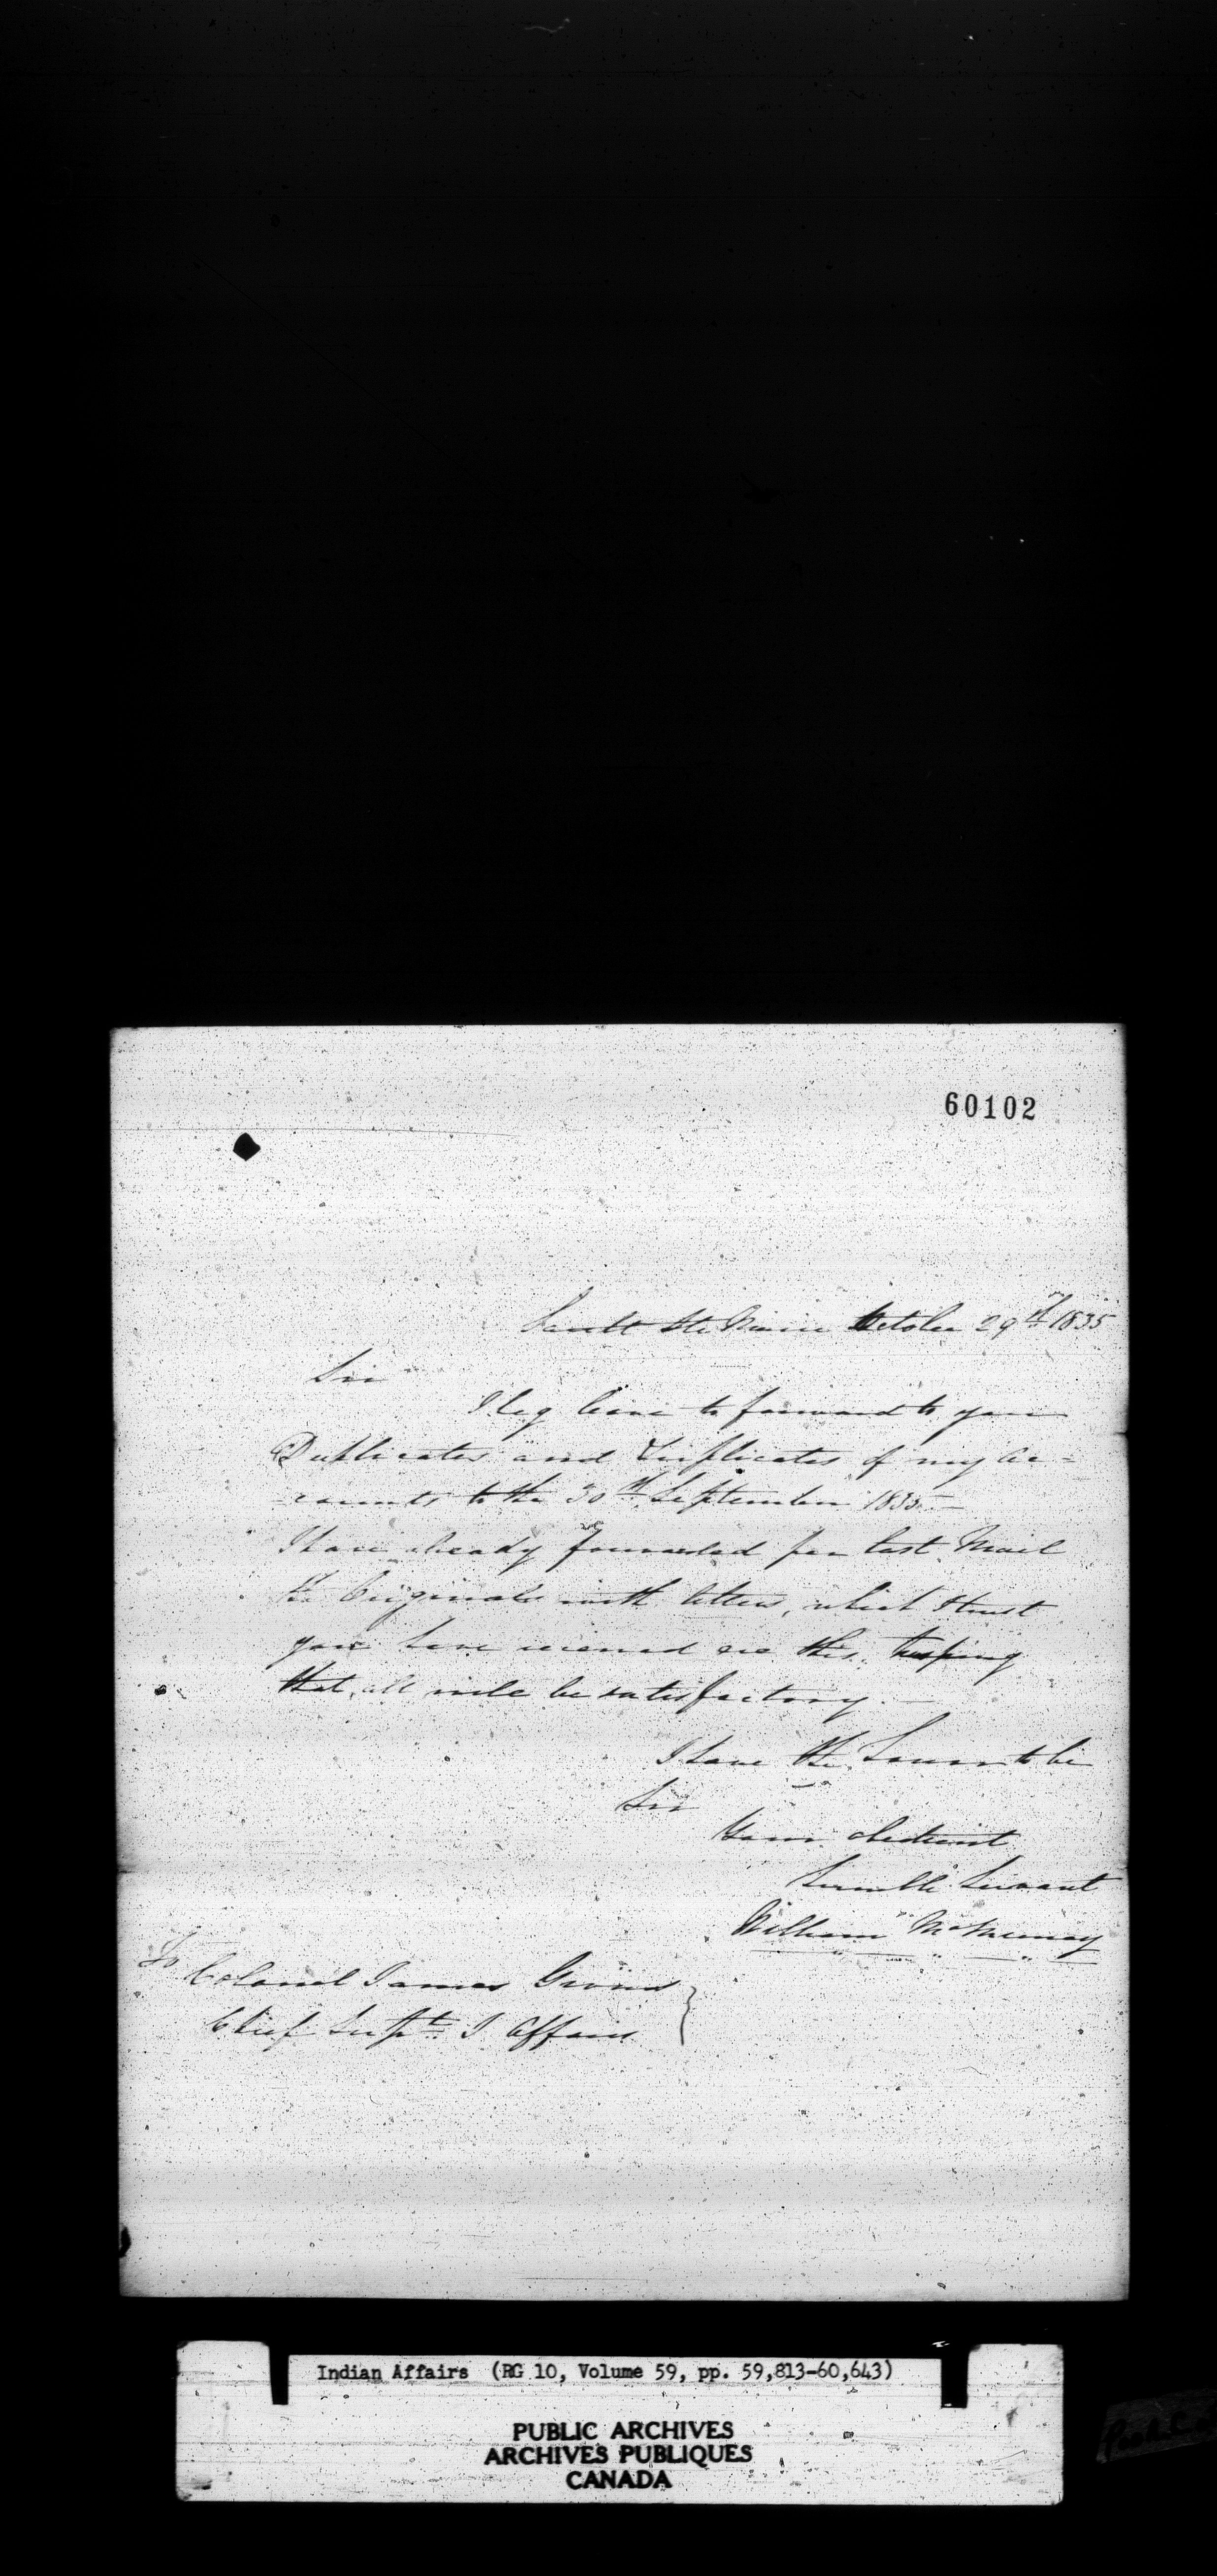 60102
Sault Ste Marie October 29th 1835
Sir
I beg leave to forward to you
Duplicates and Triplicates of my Ac=
=counts to the 30th September 1835
I have already forwarded per last Mail
the Originals with letters, which I trust
you have received ere this, hoping
that all will be satisfactory.
I have the honor to be
Sir
Your obedient
humble Servant
William McMurray
To Colonel James Givins
Chief Supt. I Affairs
Indian Affairs (RG 10, Volume 59, pp. 59,813-60,643)
PUBLIC ARCHIVES
ARCHIVES PUBLIQUES
CANADA